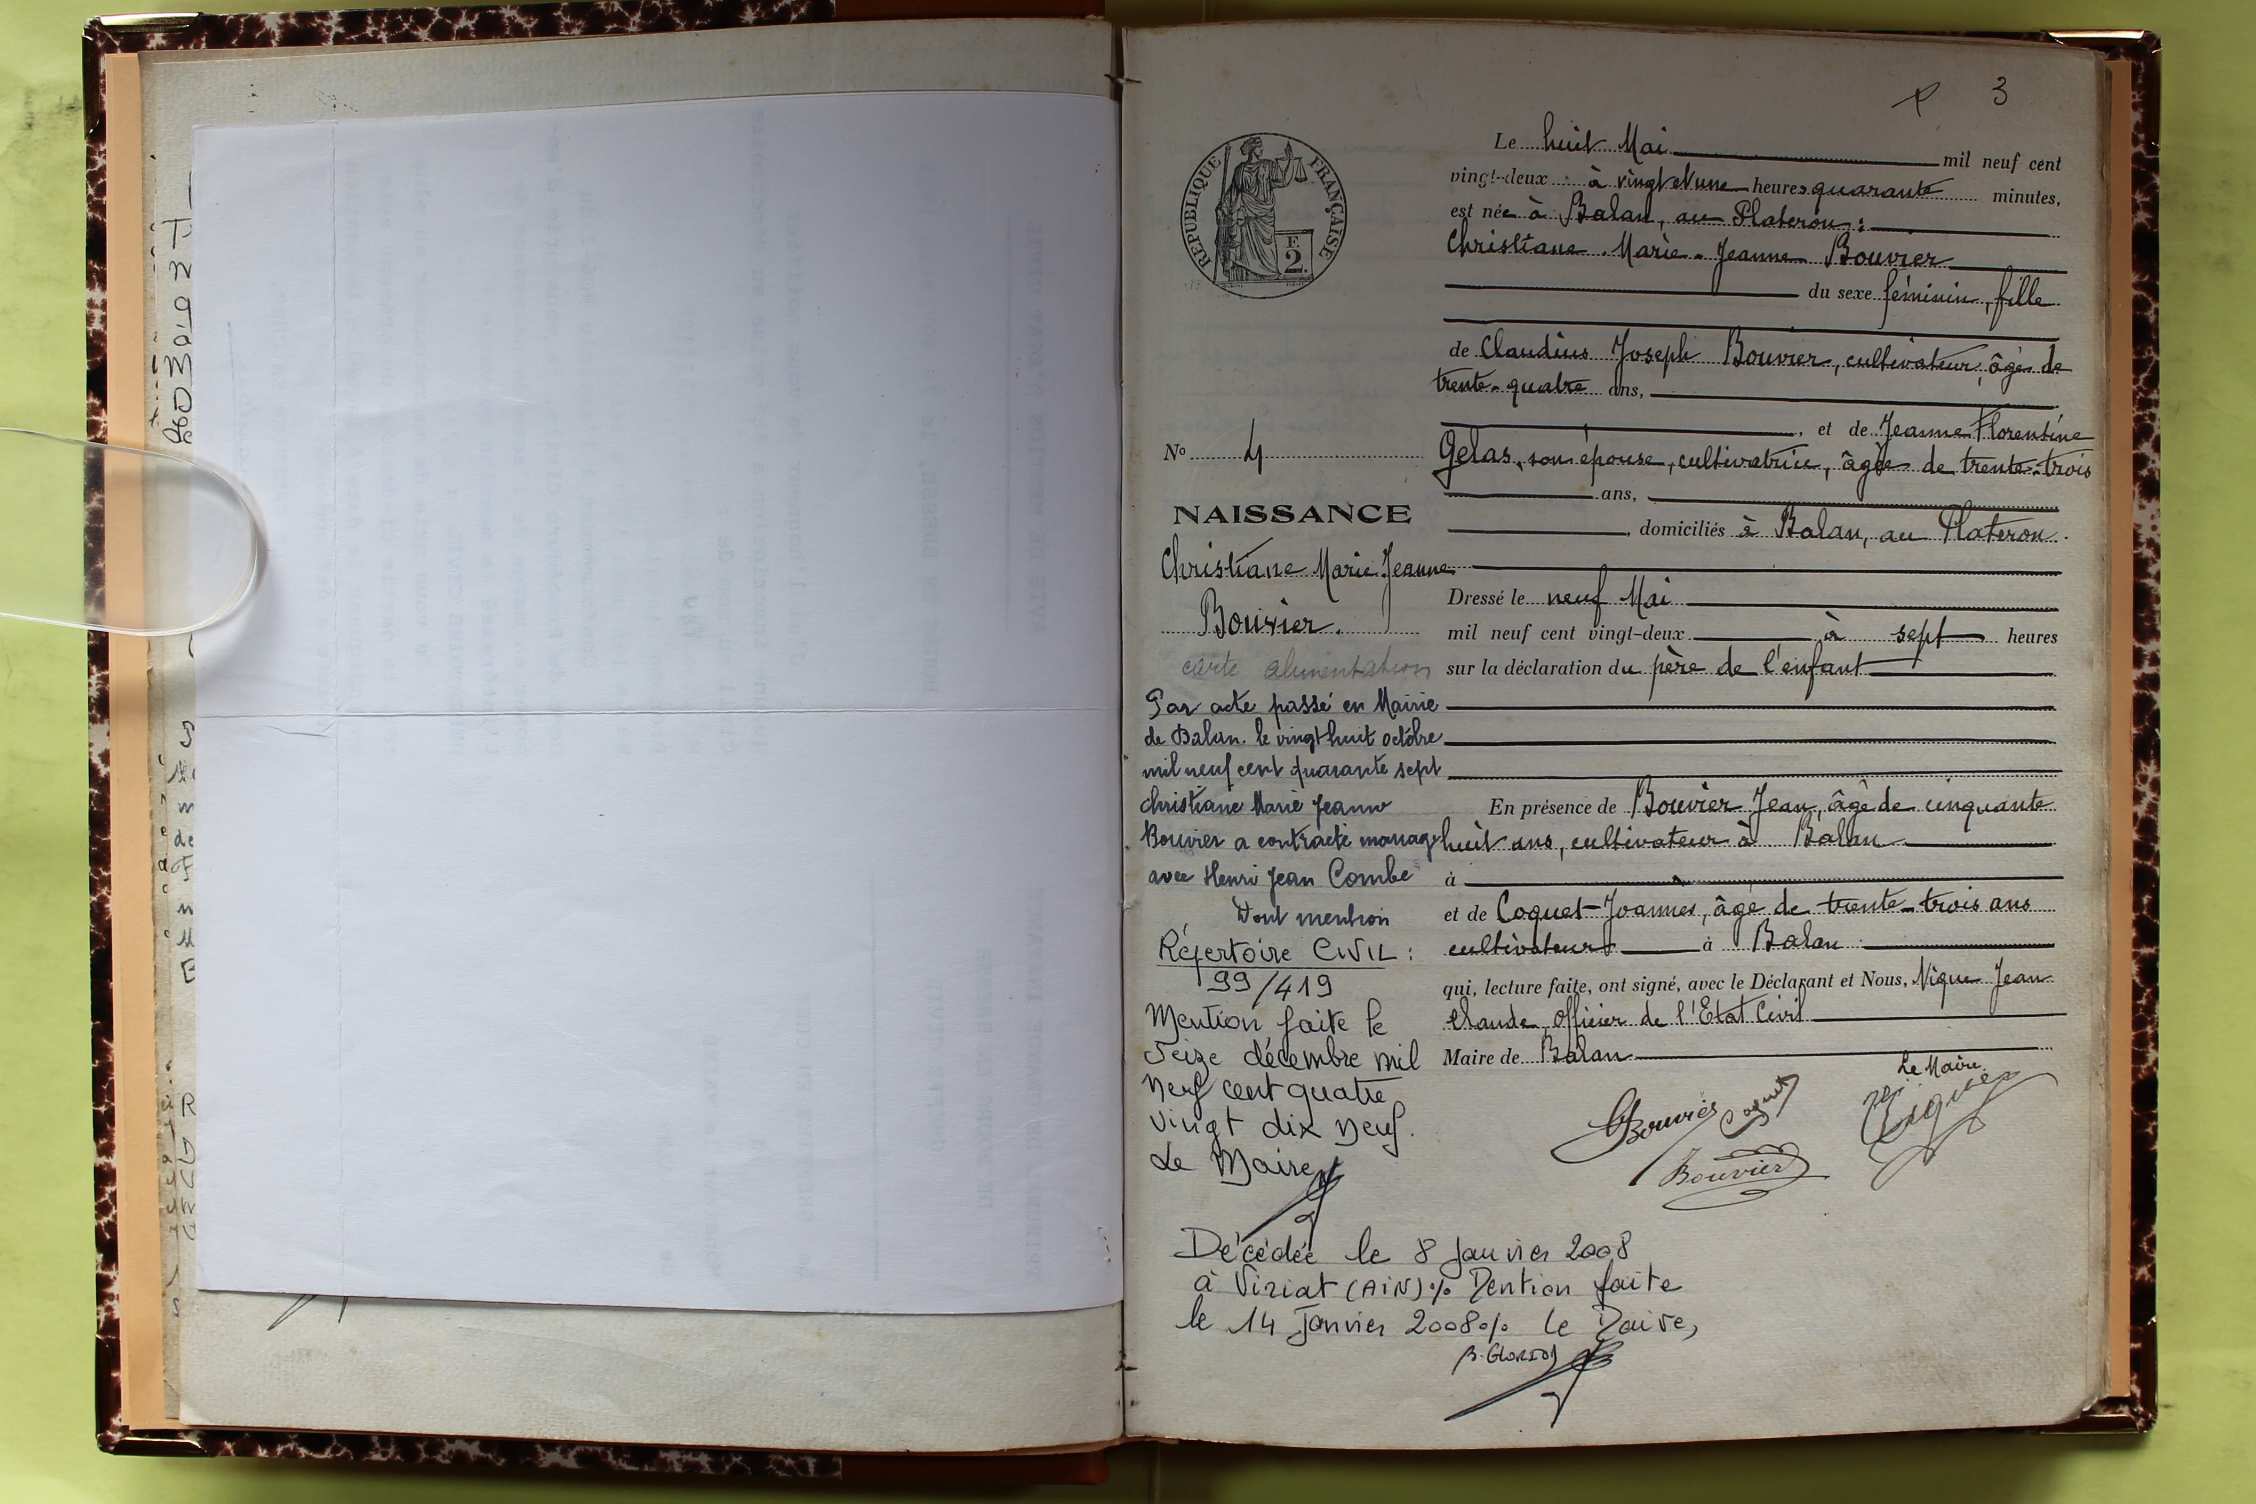 3
RÉPUBLIQUE FRANÇAISE
F.
2.
Le huit Mai mil neuf cent
vingt-deux à vingt et une heures quarante minutes,
est née à Balan, au Plateron :
Christiane . Marie - Jeanne Bouvier
du sexe féminin, fille
de Claudius Joseph Bouvier, cultivateur, âgé de
trente-quatre ans,
, et de Jeanne Florentine
Gelas, son épouse, cultivatrice, âgée de trente-trois
ans,
, domiciliés à Balan, au Plateron.
Dressé le neuf Mai
mil neuf cent vingt-deux à sept heures
sur la déclaration du père de l'enfant
En présence de Bouvier Jean, âgé de cinquante
huit ans, cultivateur à Balan
à
et de Coquet Joannès, âgé de trente-trois ans
cultivateur à Balan
qui, lecture faite, ont signé, avec le Déclarant et Nous, Vique Jean
Claude, officier de l'Etat Civil
Maire de Balan
Le Maire
Bouvier Coquet
Bouvier
No 4
NAISSANCE
Christiane Marie Jeanne
Bouvier.
carte alimentation
Par acte passé en Mairie
de Balan. le vingt huit octobre
mil neuf cent quarante sept
Christiane Marie Jeanne
Bouvier a contracté mariage
avec Henri Jean Combe
Dont mention
Répertoire CIVIL :
99/419
Mention faite le
Seize décembre mil
Neuf cent quatre
vingt dix neuf.
Le Maire
Décédée le 8 Janvier 2008
à Viriat (AIN)% Mention faite
le 14 Janvier 2008% Le Maire,